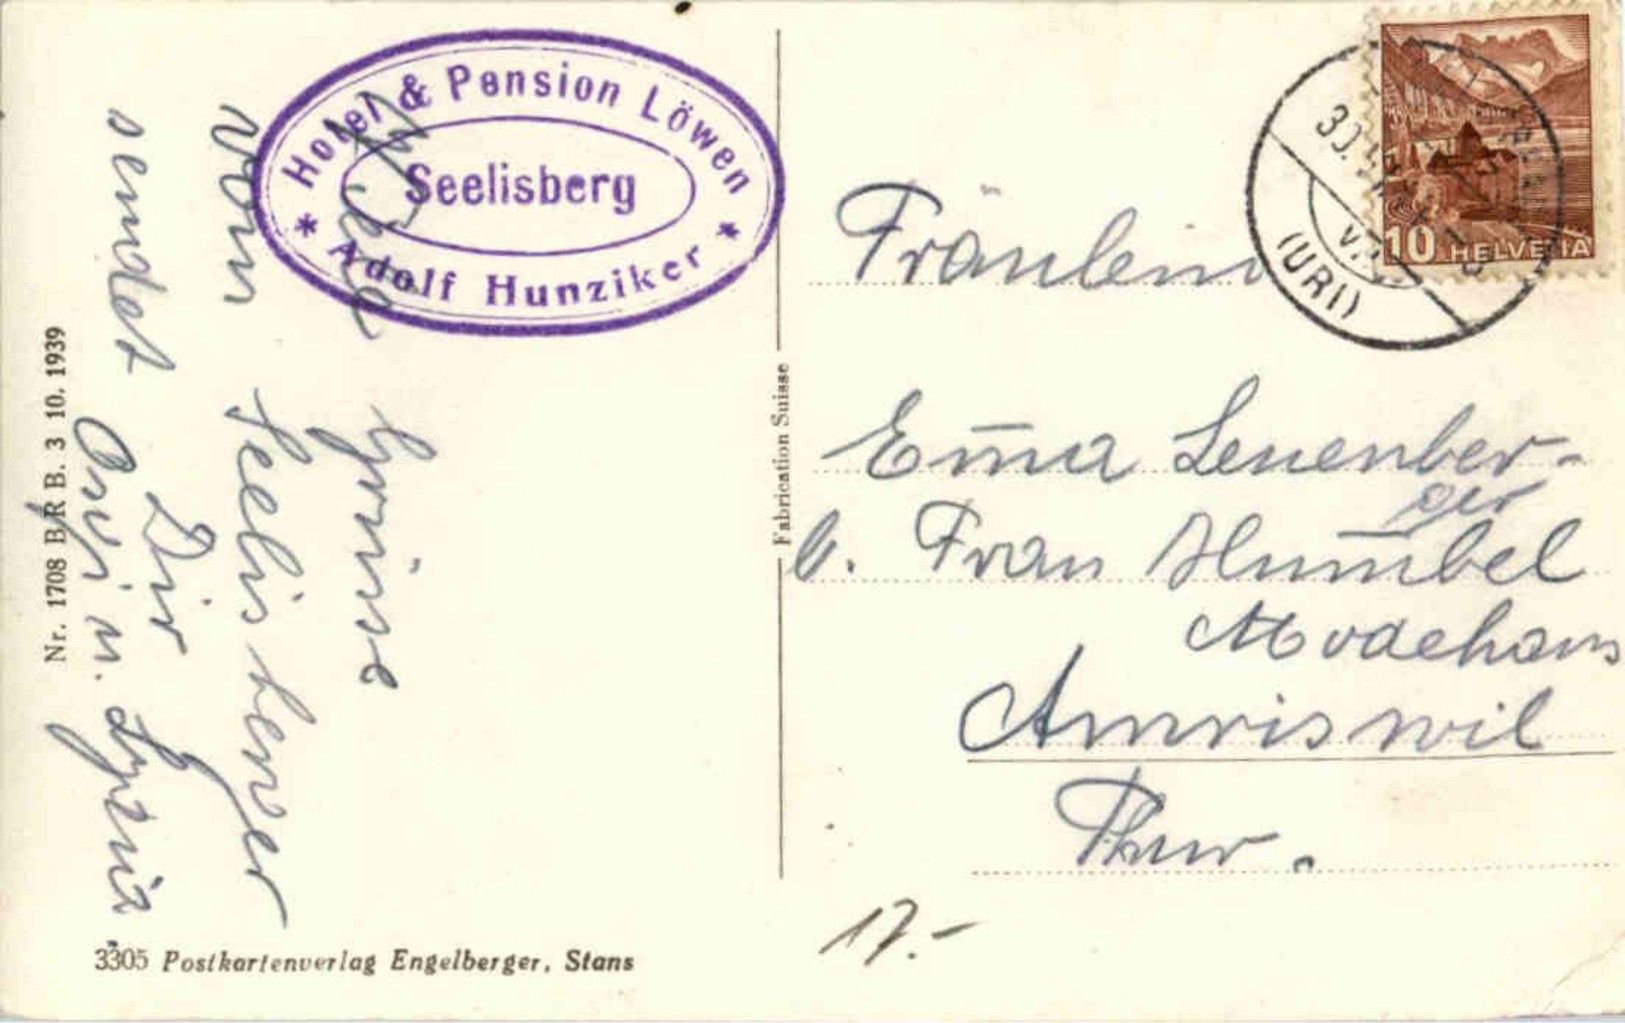 Hotel & Pension Löwen
Seelisberg
* Adolf Hunziker *
Viele Grüsse
vom Seelisberger
sendet Dir
u. Lydia
Nr. 1708 B R B. 3 10. 1939
3305 Postkartenverlag Engelberger, Stans
Fabrication Suisse
30.
(URI)
10 HELVETIA
Fräulein
Em̅a Leuenber-
ger
b. Frau Hum̅bel
Modehaus
Amriswil
Thur.
17.-